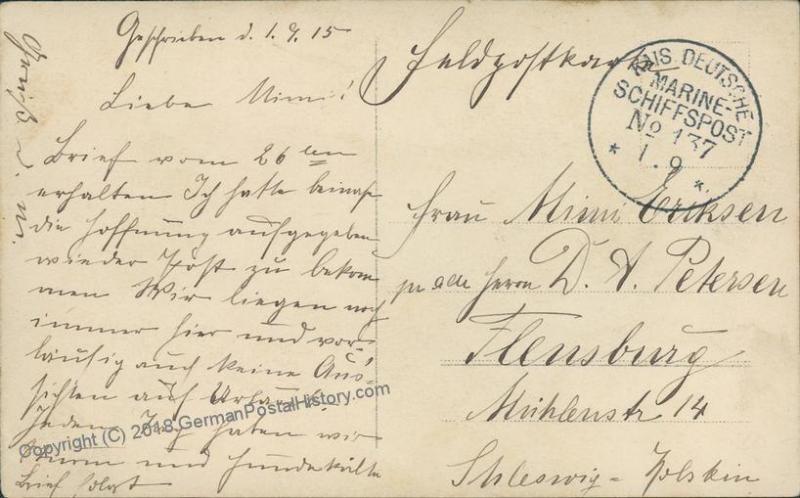 Geschrieben d. 1.9.15
Liebe Mimi!
Brief vom 26ten
erhalten Ich hatte beinahe
die Hoffnung aufgegeben
wieder Post zu bekom
men Wir liegen noch
immer hier und vor
läufig auch keine Aus
sichten auf Urlaub.
Jeden Tag haben wir
Sturm und Hundekälte
Brief folgt
Gruß
Feldpostkarte
KAIS. DEUTSCHE
MARINE-
SCHIFFSPOST
No 137
* 1.9 *
Frau Mimi Eriksen
pr adr Herrn D. A. Petersen
Flensburg
Mühlenstr 14
Schleswig-Holstein
Copyright (C) 2018 GermanPostalHistory.com